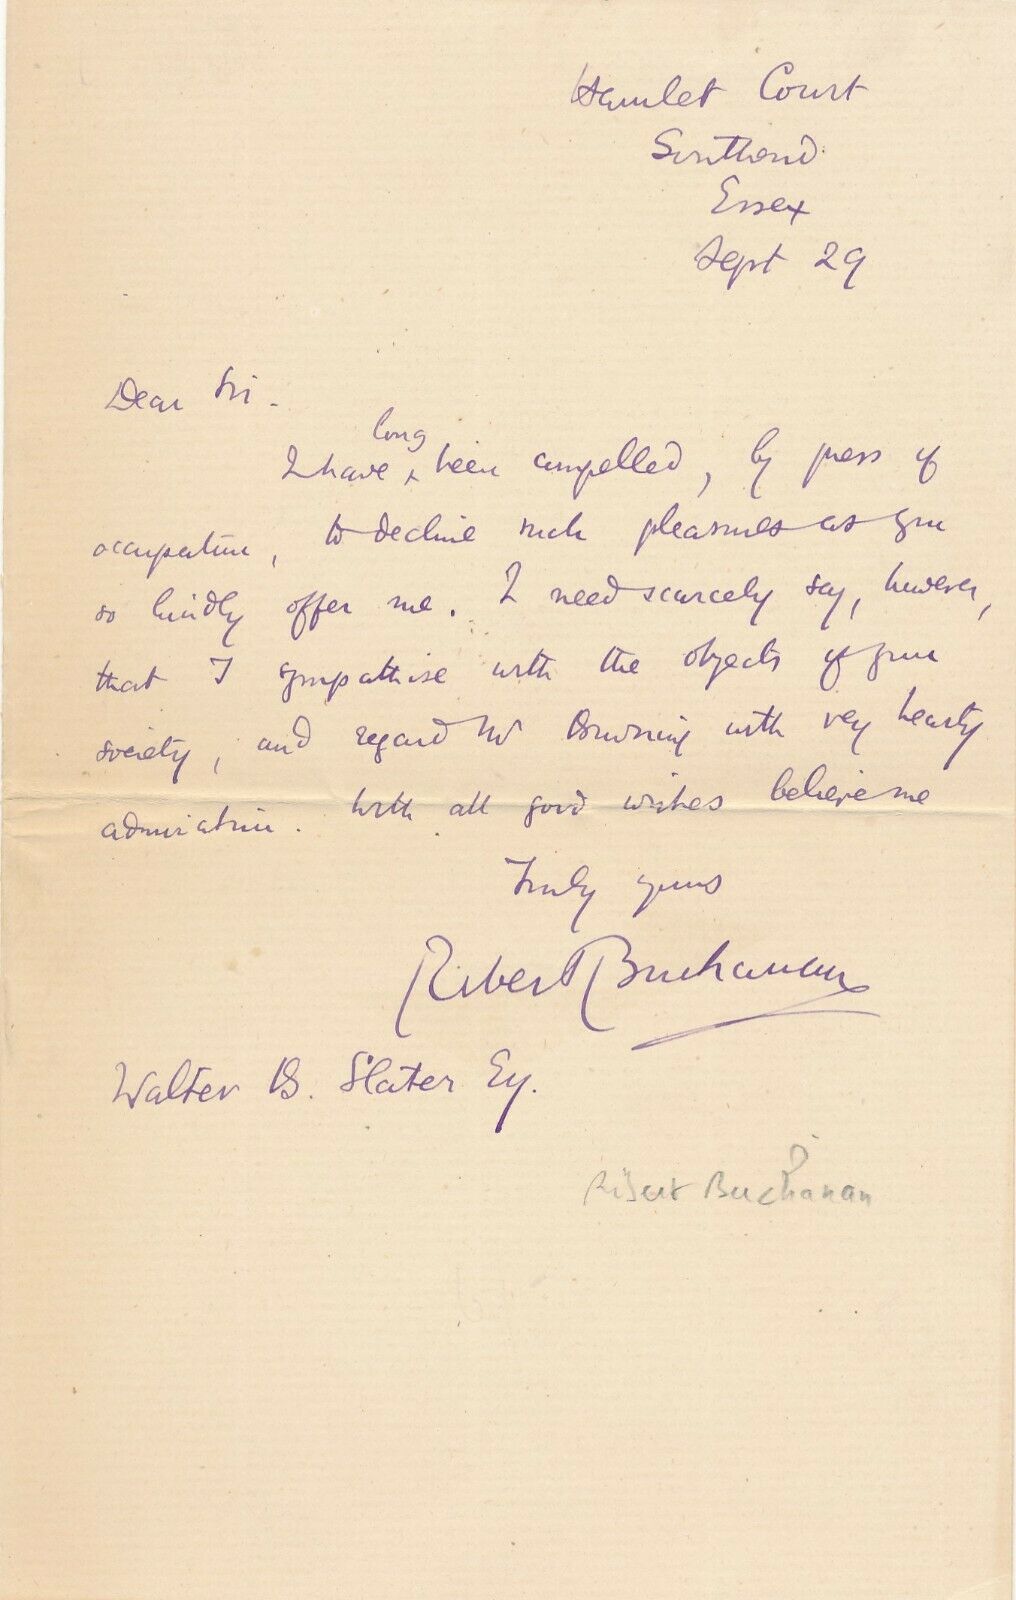 Hamlet Court
Southend
Essex
Sept 29
Dear Sir.
long
I have ^ been compelled, by press of
occupation, to decline such pleasures as you
so kindly offer me. I need scarcely say, however,
that I sympathise with the objects of your
society, and regard Mr Browning with very hearty
admiration. With all good wishes believe me
Truly yours
Robert Buchanan
Walter B. Slater Esq.
Robert Buchanan